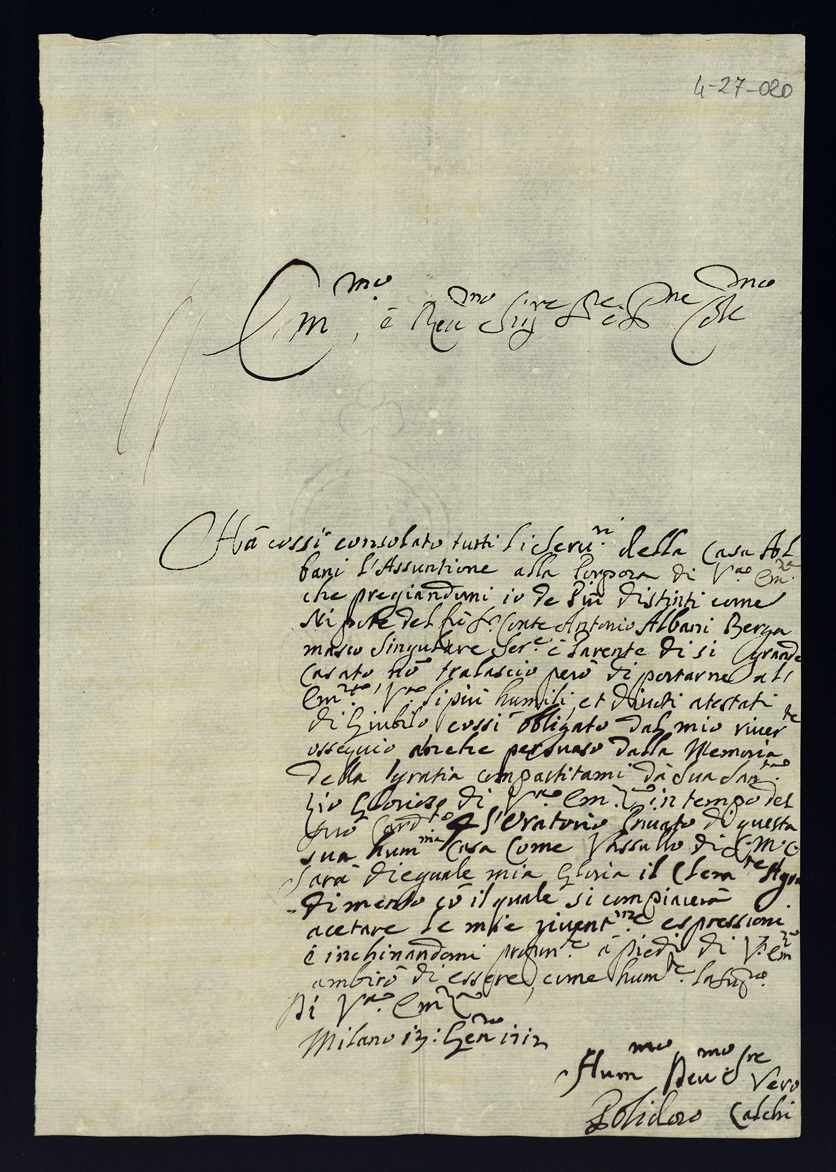 4-27-020
Em.mo, è Reu.mo Sig.re
Hà cossi consolato tutti li Seru.ri della Casa Al
bani l'Assuntione alla Porpora di V.ra Em.za
che pregiandomi io de piu distinti come
Nipote del fù Sr. Conte Antonio Albani Berga
masco singulare Ser.e è Parente di si grande
Casato nõ tralascio però di portarne all
Em.za V.ra li piu humili et diuoti atestati
di Giubilo cossi obligato dal mio riuer.te
ossequio anche persuaso dalla Memoria
della gratia compartitami dà Sua San.
Zio Glorioso di V.ra Em.za in tempo del
suo Card.to l'Oratorio Priuato di questa
sua hum.ma Casa Come Vassallo di
Sarà di eguale mia Gloria il Agra
dimento cõ il quale si compiacerà
acetare le mie riuent.me espressioni
è inchinandomi profon.te à piedi di V. Em.
ambirò di essere come hum.te
Di V.ra Em.za
Milano 13: Gen.ro 1712
Hum.mo Deu.mo Sre Vero
Polidoro Calchi